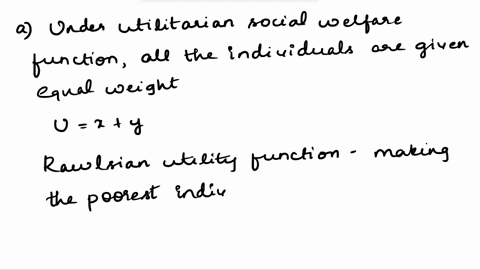 a) Under utilitarian social welfare
function, all the individuals are given
equal weight
U = x + y
Rawlsian utility function - making
the poorest indiv